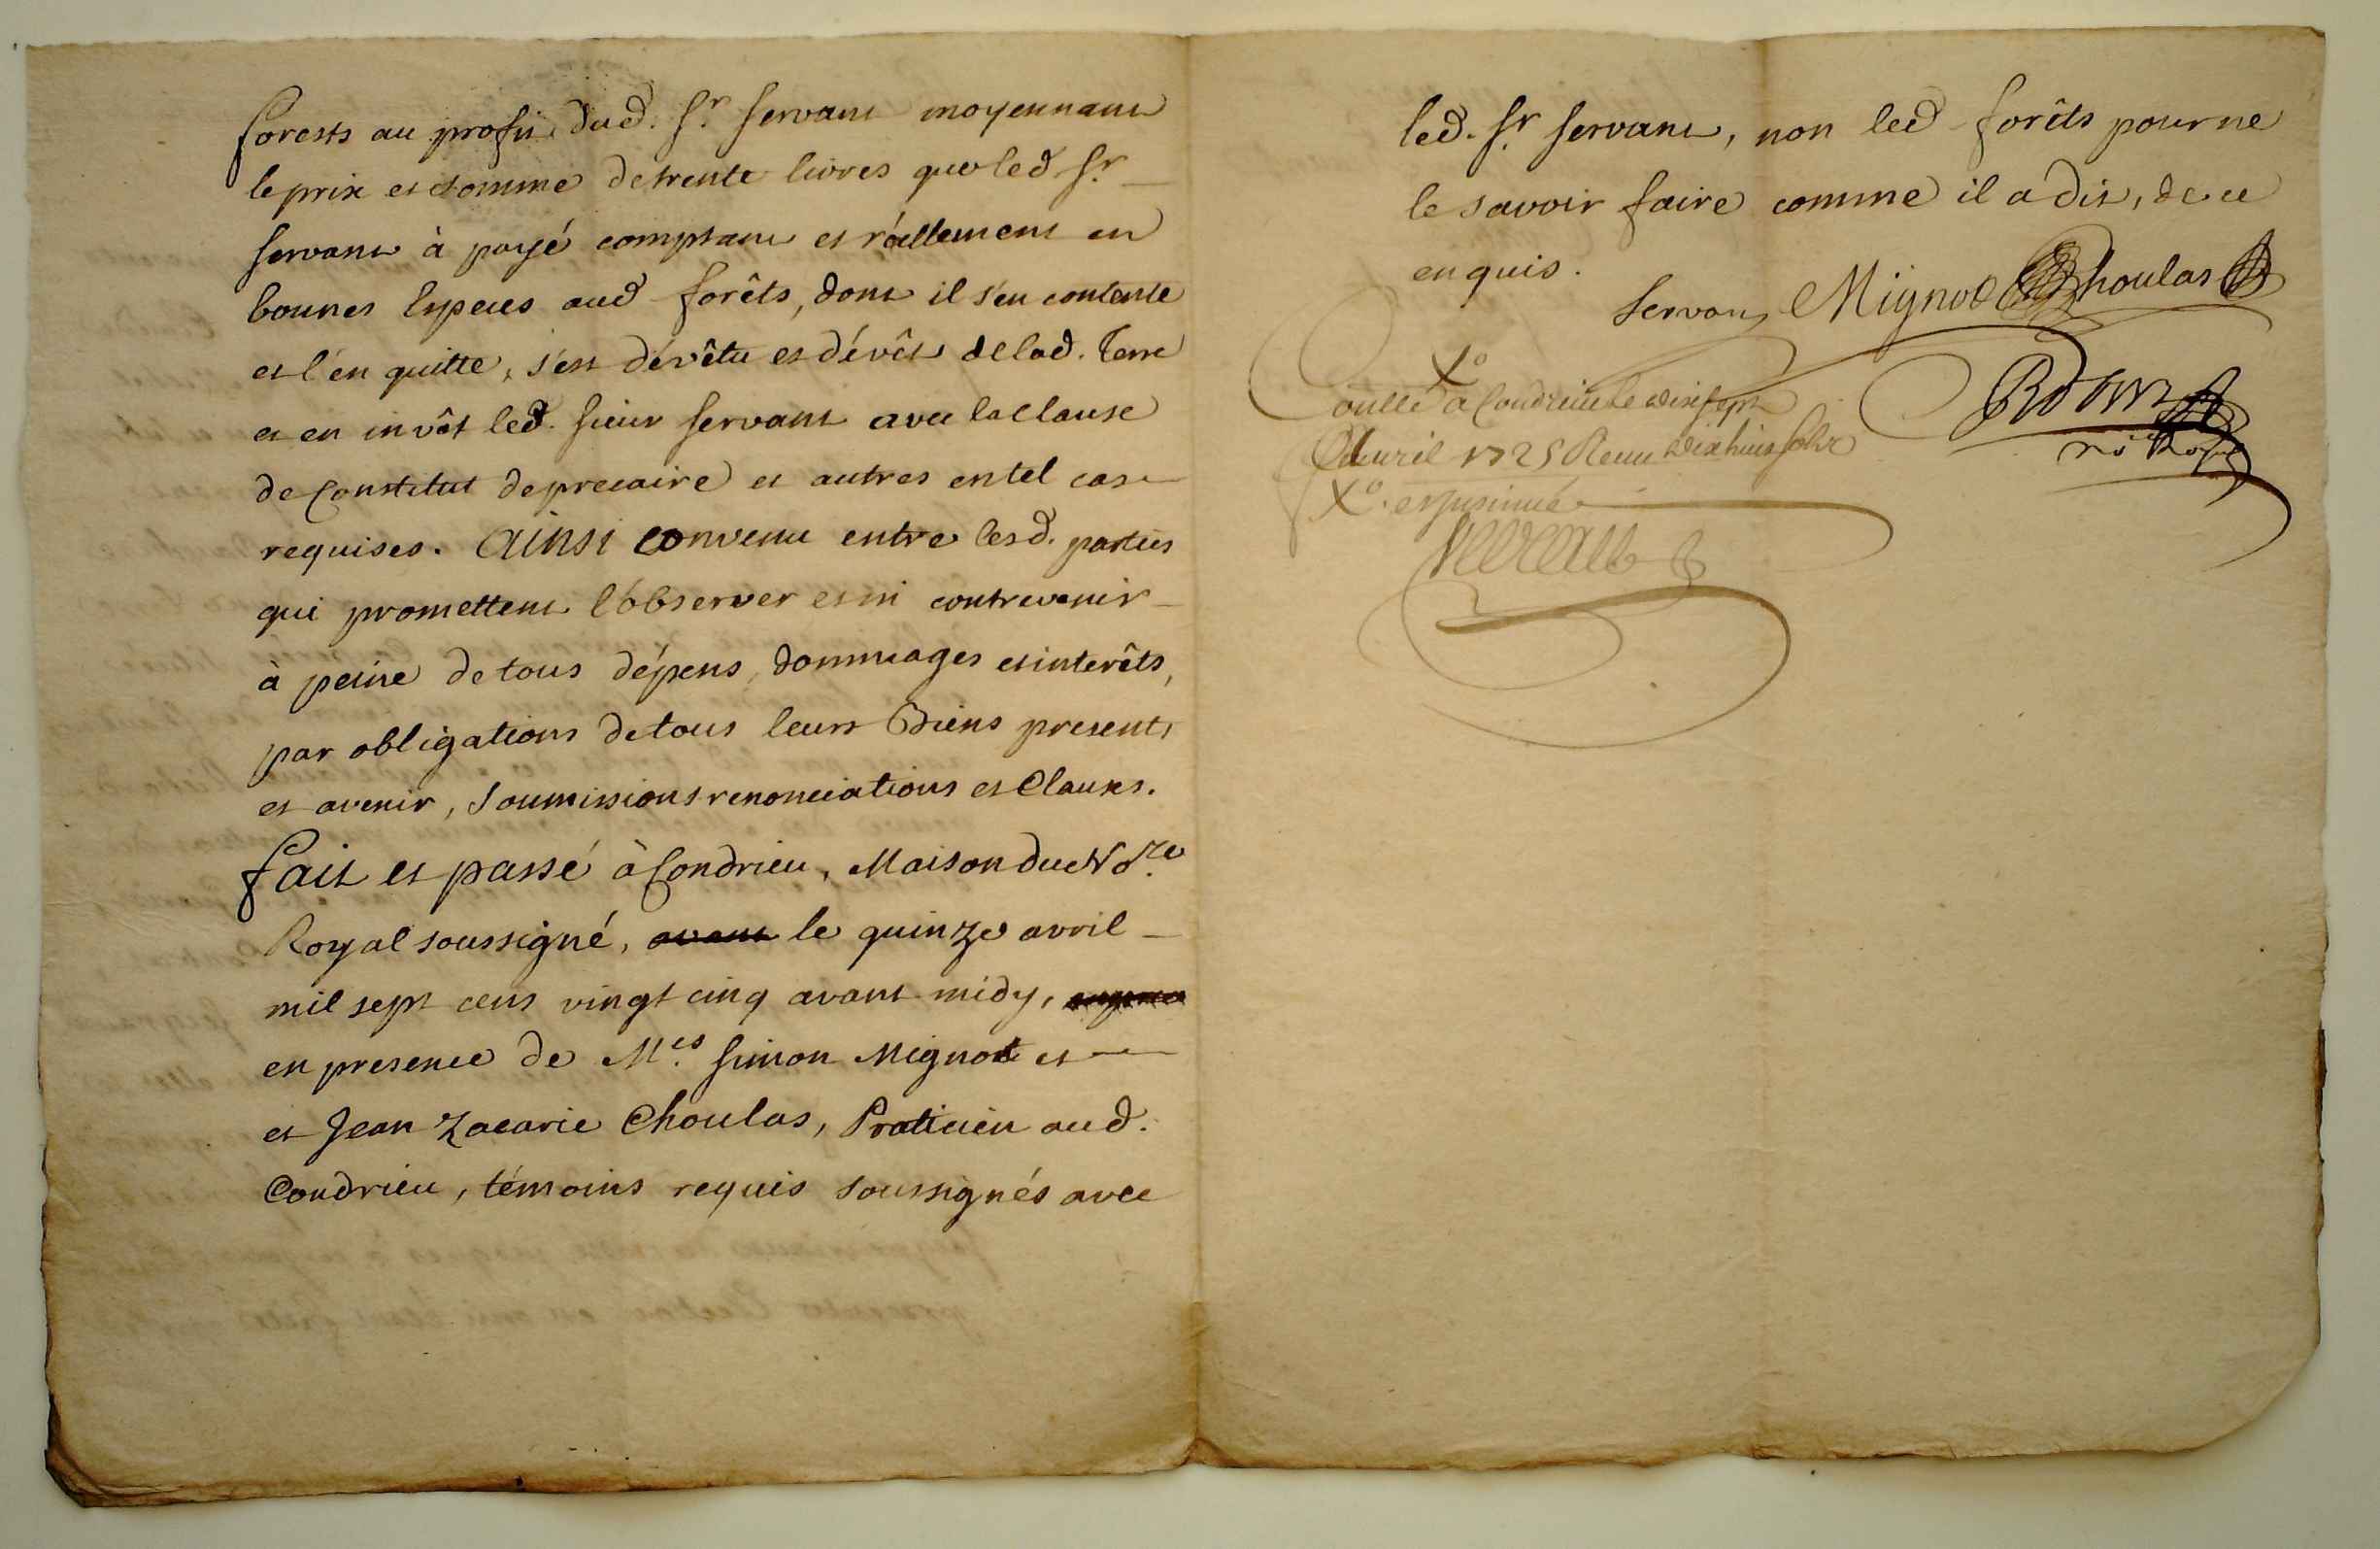 forests au profit dud. Sr. Servant moyennant
le prix et somme de trente livres que led. Sr.
Servant à payé comptant et réellement en
bonnes Especes aud. forêts, dont il s'en contente
et l'en quitte, s'est dévêtu et dévêt de lad. Terre
et en invêt led. Sieur Servant avec la Clause
de Constitut de precaire et autres en tel cas
requises. Ainsi convenu entre lesd. parties
qui promettent l'observer et ni contrevenir
à peine de tous dépens, dommages et interêts,
par obligations de tous leurs Biens presents
et avenir, Soumissions renonciations et Clauses.
fait et passé à Condrieu, Maison du Nore.
Royal soussigné, avant le quinze avril
mil sept cent vingt cinq avant midy,
en presence de Mes. Simon Mignot et
et Jean Zacarie Choulas, Praticien aud.
Condrieu, témoins requis soussignés avec
led. Sr. Servant, non led. forêts pour ne
le savoir faire comme il a dit, de ce
enquis.
Servant Mignot Choulas
Xo
oullé a Condrieu le dixsept
Avril 1725 Receu dix huit sols
Xo. et Insinué